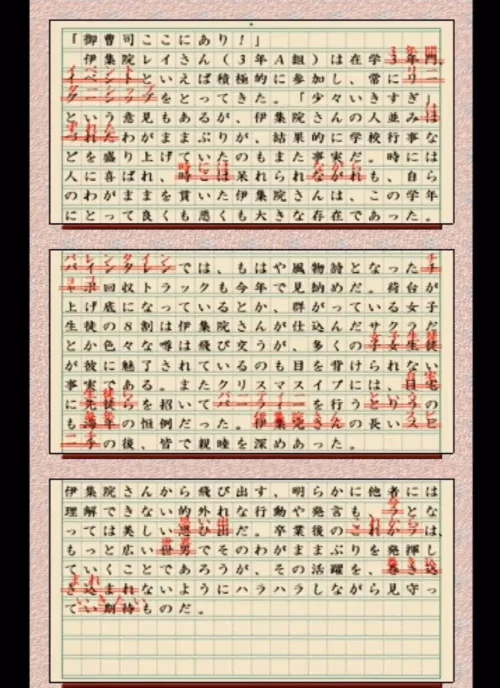 「御曹司ここにあり!」
伊集院レイさん(3年A組)は在学3年門、
といえば積極的に参加し、常に
をとってきた。「少々いきすぎ」
という意見もあるが、伊集院さんの人並み
わがままぶりが、結果的に学校行事な
どを盛り上げていたのもまた事実だ。時には
人に喜ばれ、時こは呆れられながれも、自ら
のわがままを貫いた伊集院さんは、この学年
にとって良くも悪くも大きな存在であった。
バレンタイン
バインタレンでは、もはや風物詩となったチ
回収トラックも今年で見納めだ。荷台が
上げ底になっているとか、群がっている女子
生徒の8割は伊集院さんが仕込んだサクラだ
とか色々な噂は飛び交うが、多くの子女生徒
が彼に魅了されているのも目を背けられない
事実である。またクリスマスイブには、
に先徒らを招いてを行う
も海年の恒例だった。の長いスピ
の後、皆で親睦を深めあった。
伊集院さんから飛び出す、明らかに他者には
理解できない的外れな行動や発言も、
っては美しい出だ。卒業後の
もっと広い世男でそのわがままぶりを発揮し
ていくことであろうが、その活躍を、巻き込
まれ
ないようにハラハラしながら見守っ
ものだ。